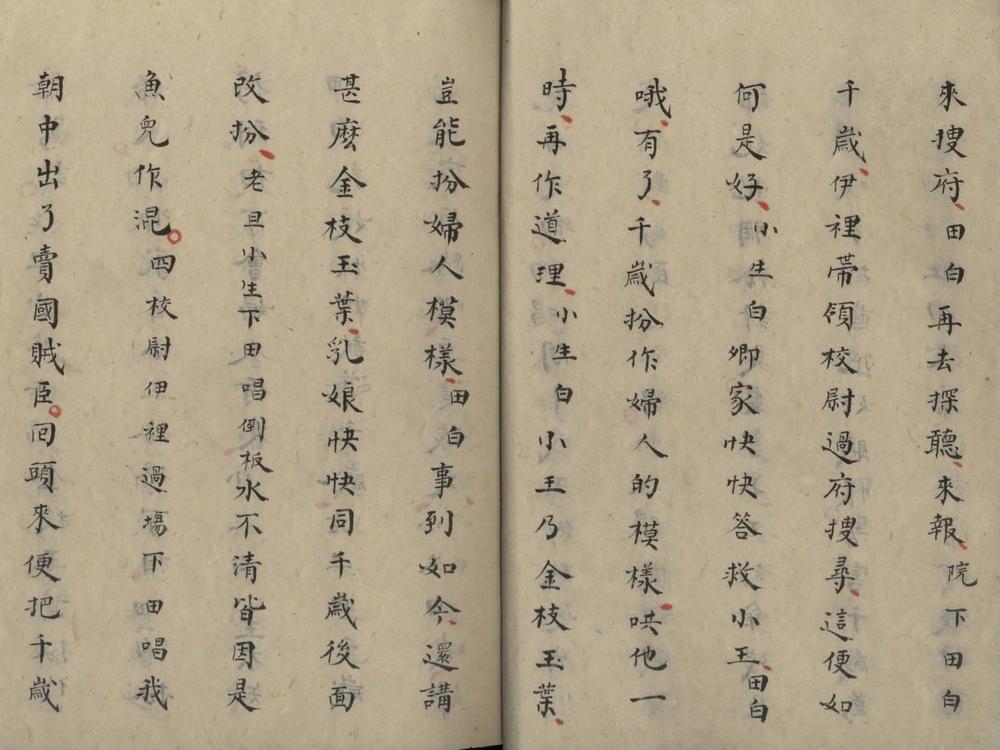 來搜府、田白再去探聽、來報、院下田白
千歲、伊裡帶領校尉過府搜尋、這便如
何是好、小生白卿家快快答救小王、田白
哦、有了、千歲扮作婦人的模樣、哄他一
時、再作道理、小生白小王乃金枝玉葉、
豈能扮婦人模樣、田白事到如今、還講
甚麽金枝玉葉、乳娘快快同千歲後面
改扮、老旦小生下田唱倒板水不清皆因是
魚兒作混。四校尉伊裡過塲下田唱我
朝中出了賣國賊臣。囘頭來便把千歲